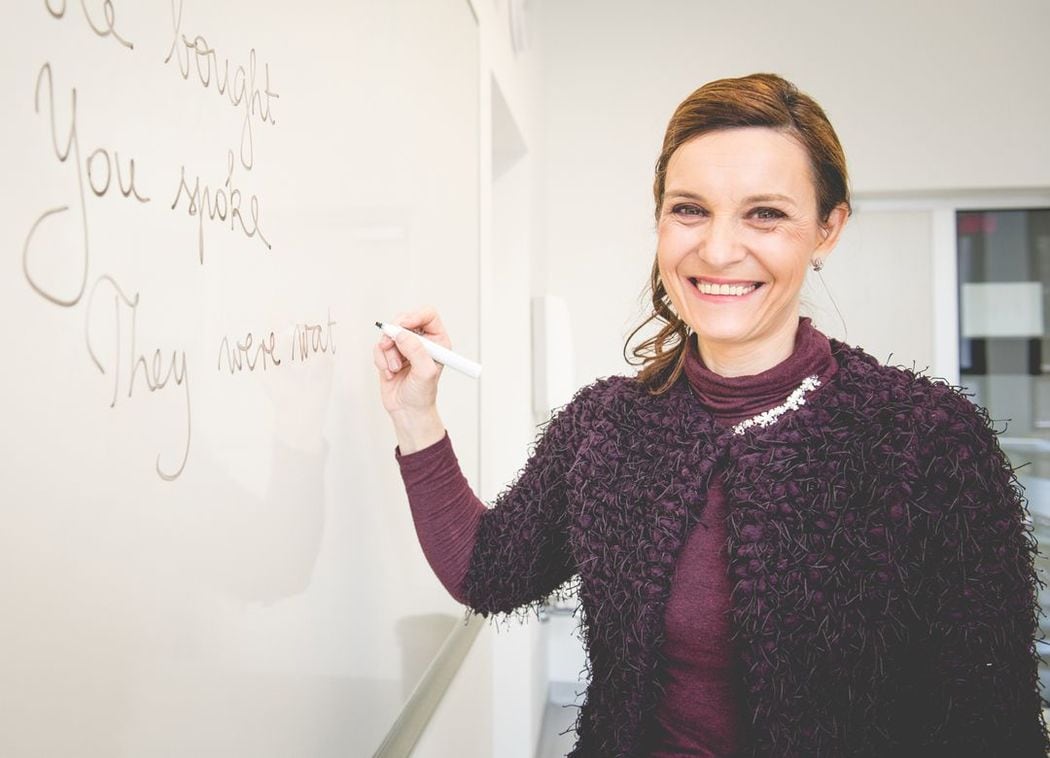 bought
You spoke
They were wat